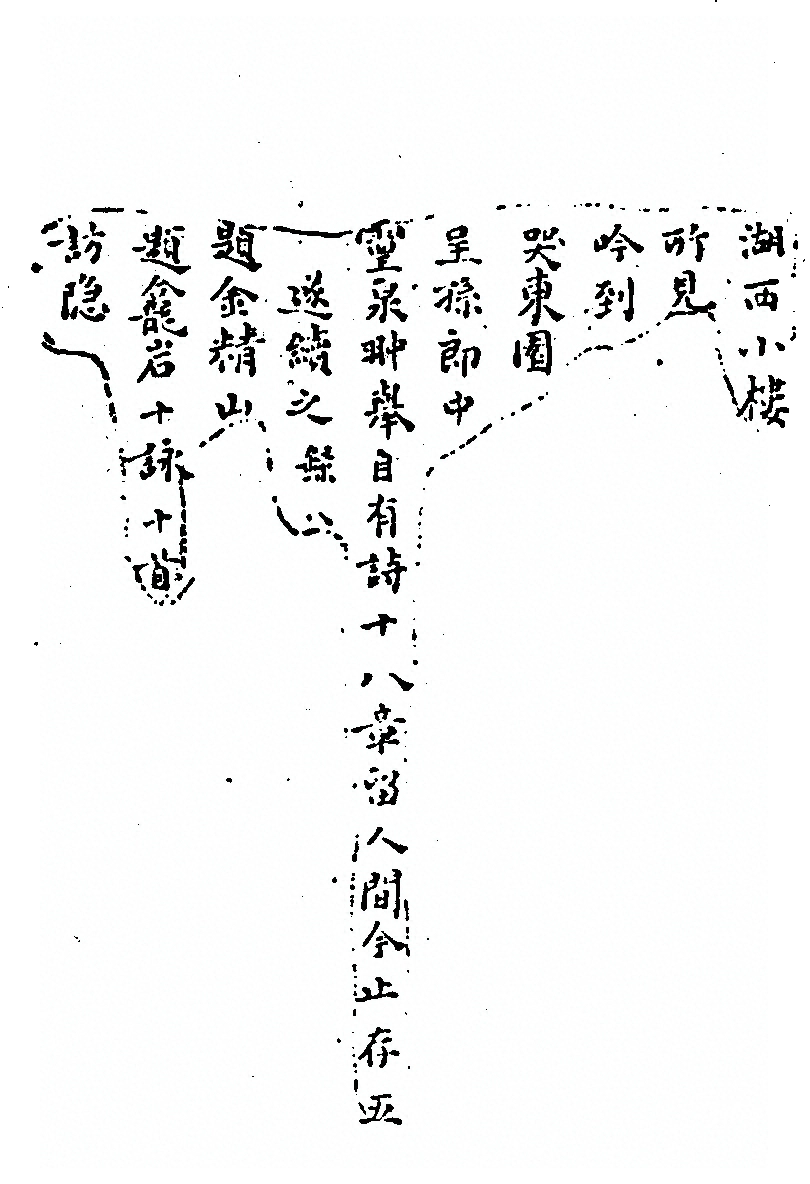 湖西小楼
所見
吟到
哭東園
呈孫郎中
靈泉翀舉自有詩十八章留人間今止存五
遂續之
題金精山
題龕岩十詠十首
訪隐